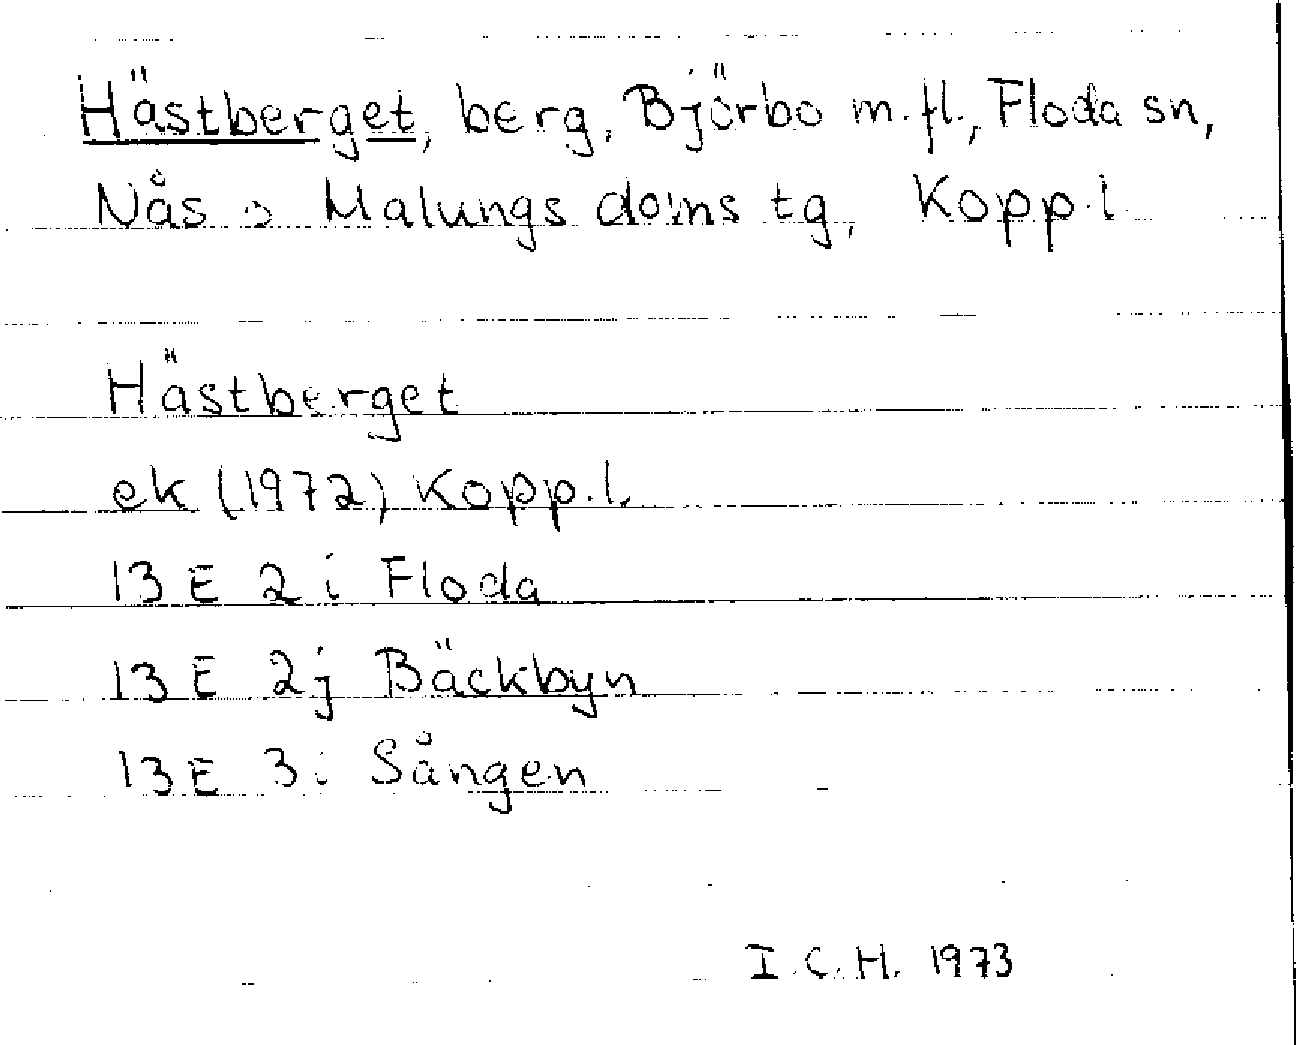 Hästberget, berg, Björbo m.fl., Floda sn,
Nås o Malungs doms tg, Kopp.l
Hästberget
ek (1972) Kopp.l.
13 E 2 i Floda
13 E 2j Bäckbyn
13 E 3i Sången
I.C.H. 1973